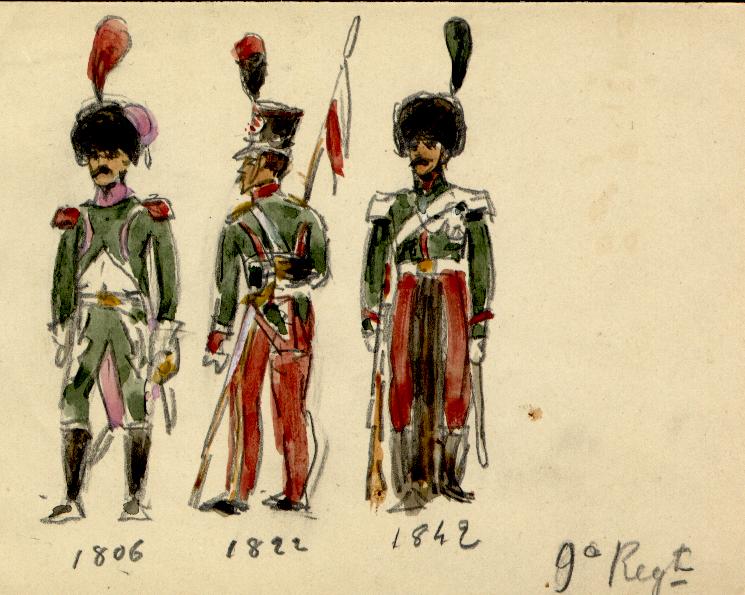 1806
1822
1842
9ª Regt